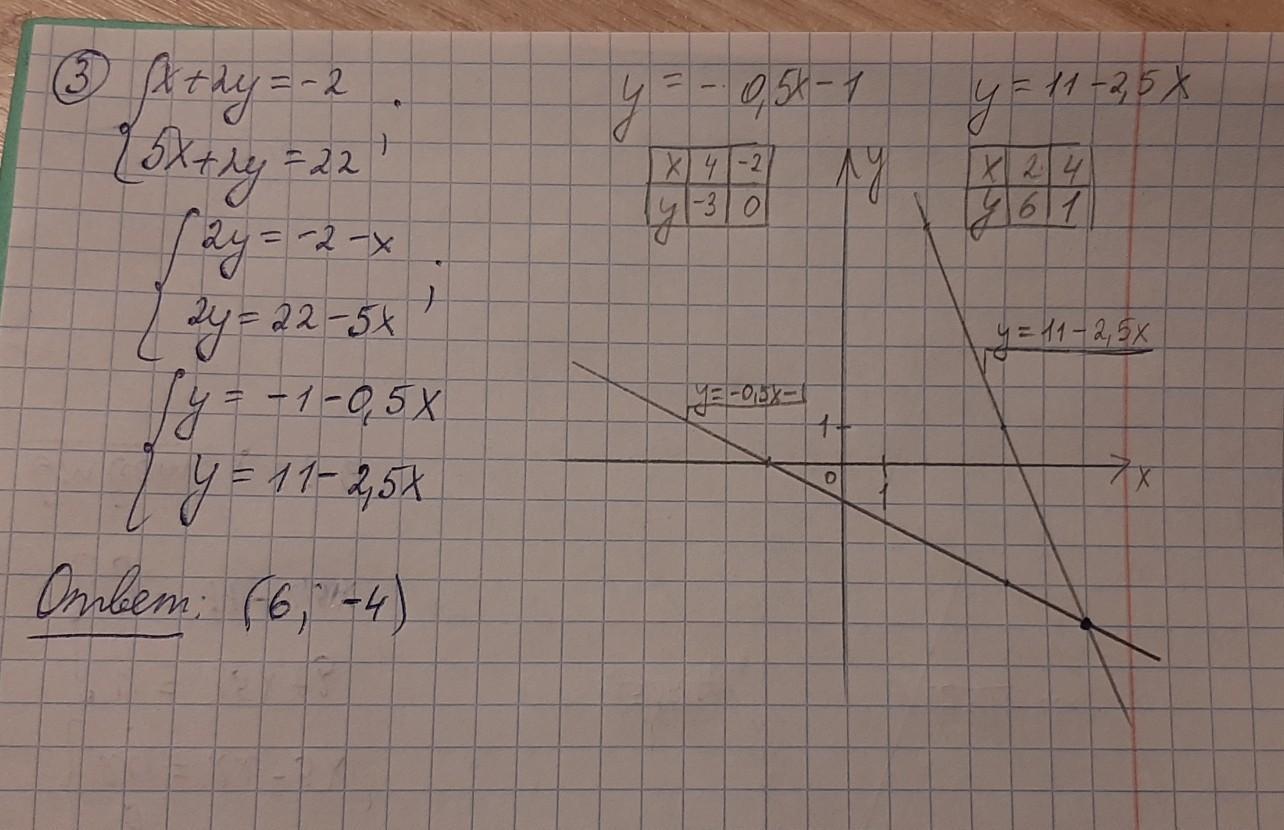 ③ { x+2y=-2
5x+2y=22 ;
{ 2y=-2-x
2y=22-5x ;
{ y=-1-0,5x
y=11-2,5x
Ответ: (6; -4)
y=-0,5x-1
x 4 -2
y -3 0
y=11-2,5x
x 2 4
y 6 1
y
y=11-2,5x
y=-0,5x-1
1
0
1
x